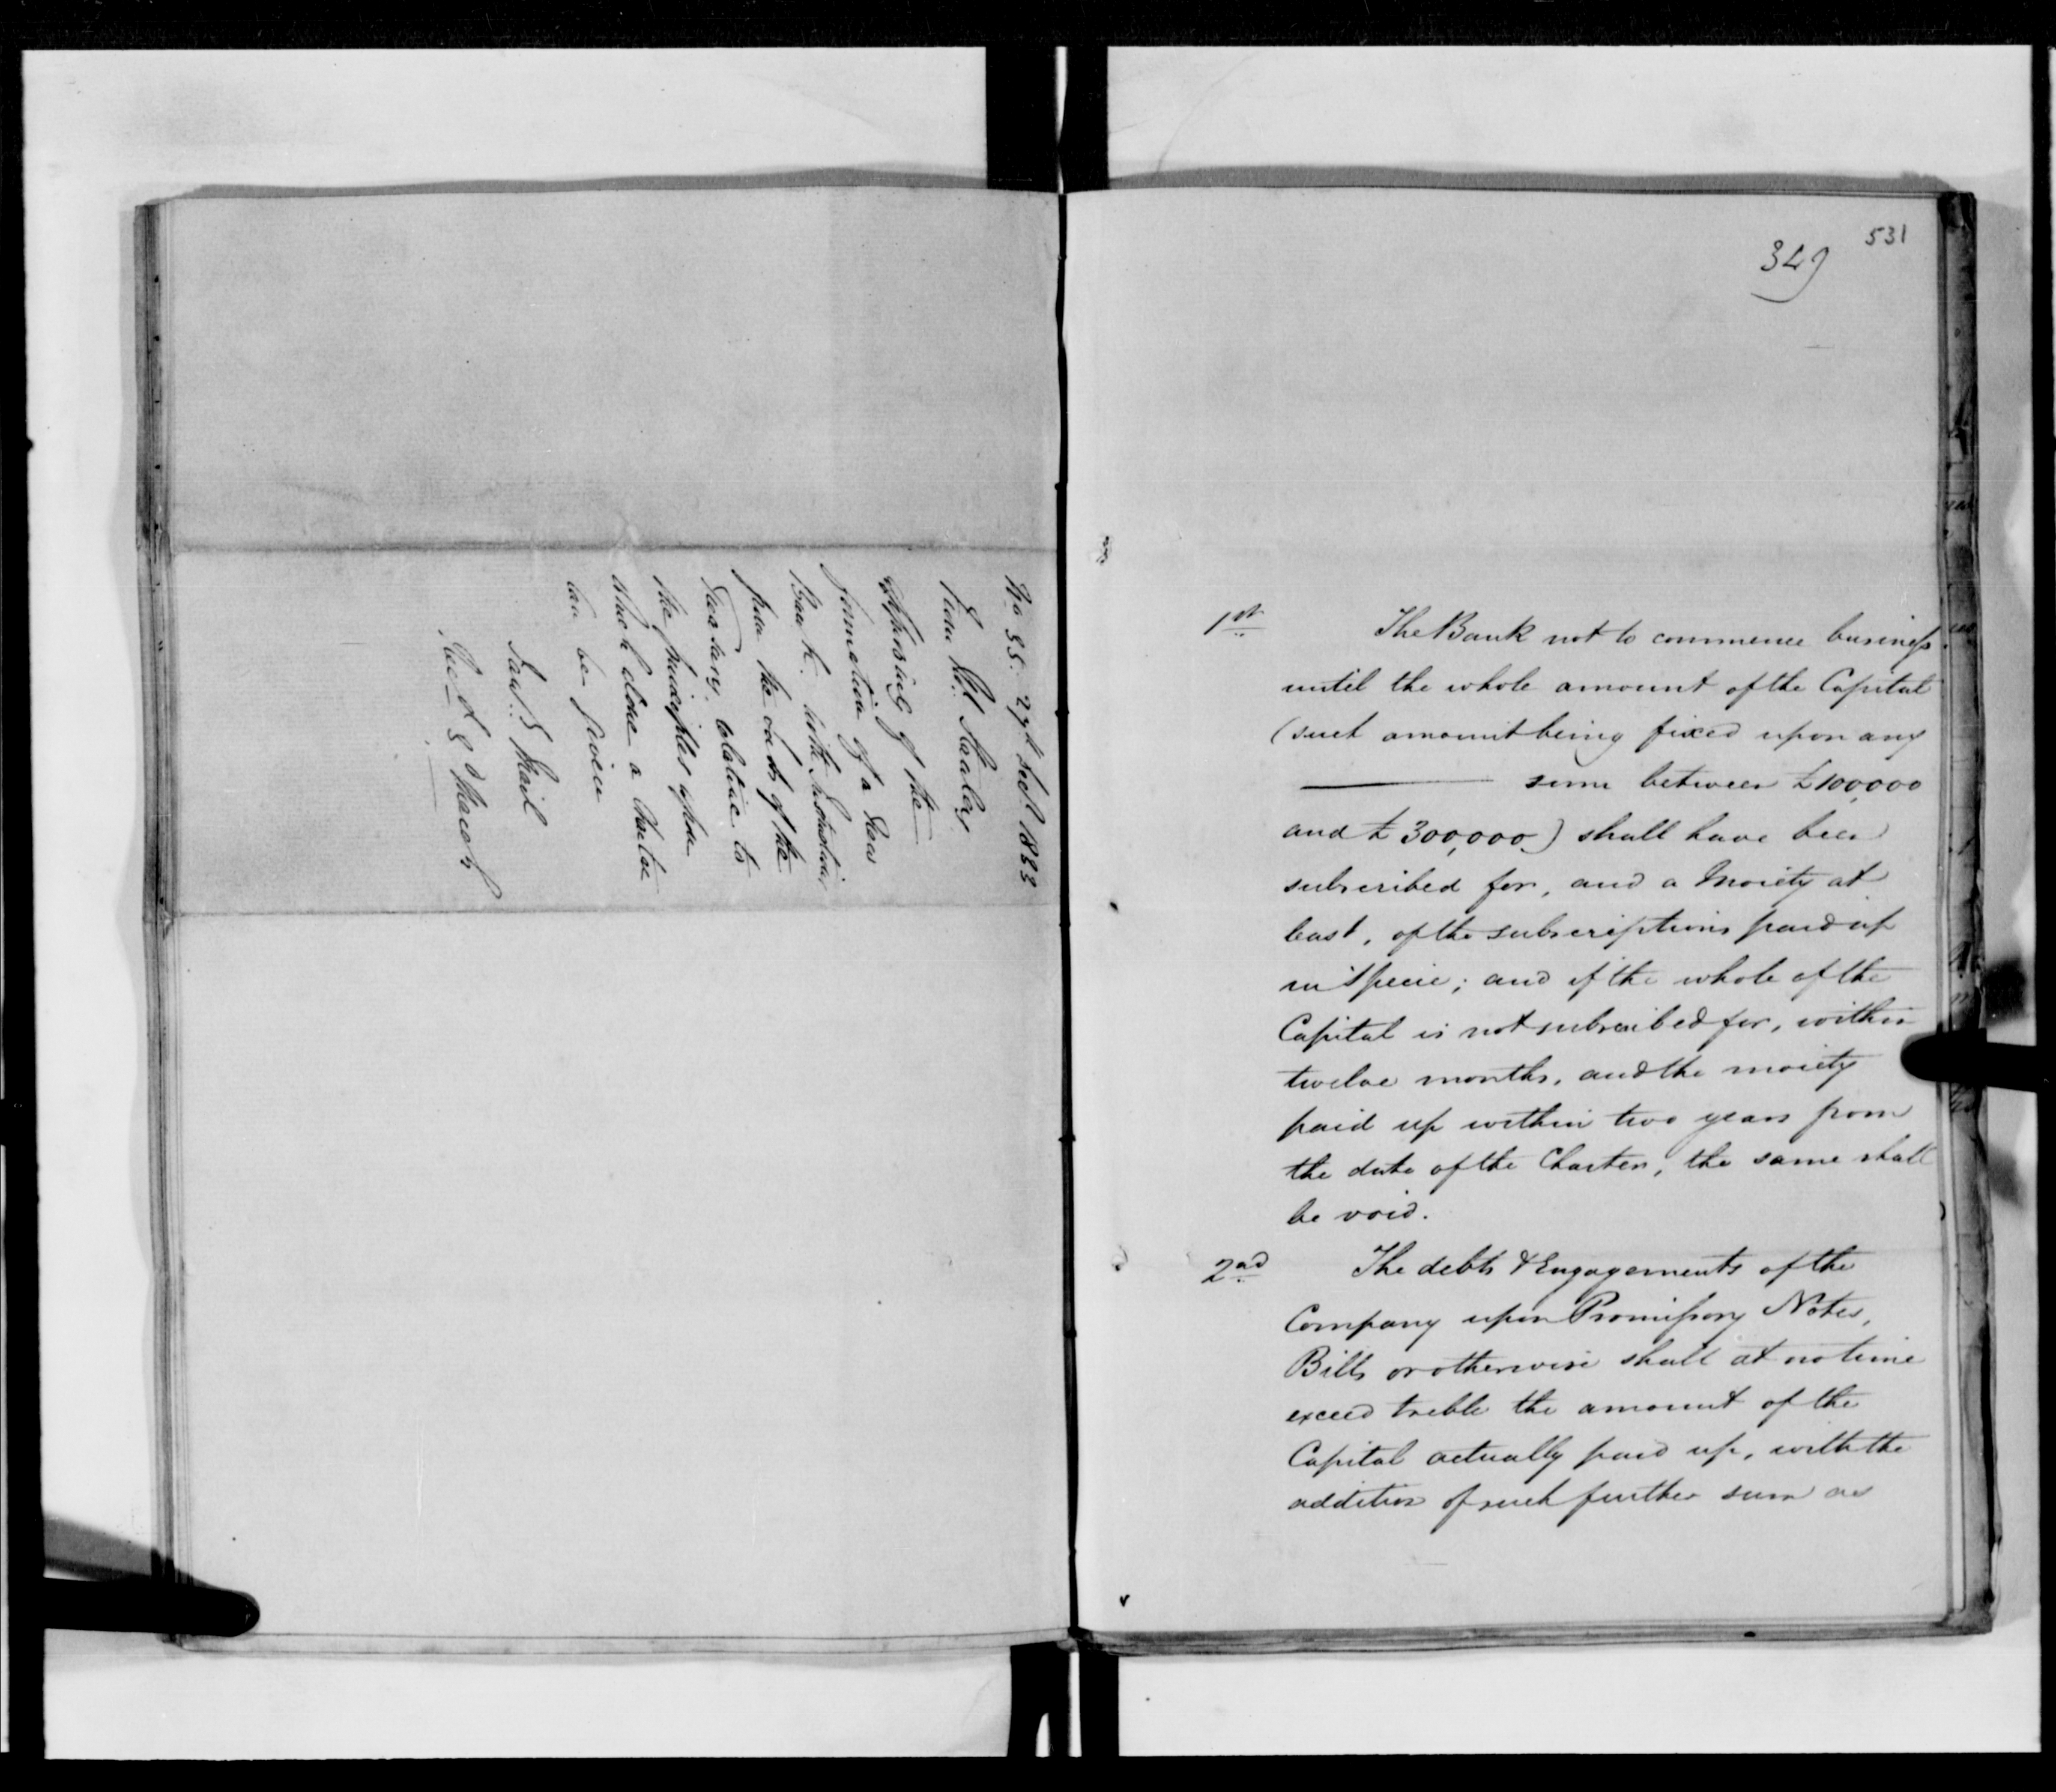 No 35. 27th Septr 1833
From Mr Stanley
Approving of the
formation of a New
Bank. with Instructions
from the Lords of the
Treasury relative to
the principles upon
which alone a Charter
can be given
Janry Mail
Rec d 8th March
531
349
1st The Bank not to commence business
until the whole amount of the Capital
(such amount being fixed upon any
sum between £100,000
and £300,000) shall have been
subscribed for, and a Moiety at
least, of the subscriptions paid up
in Specie; and if the whole of the
Capital is not subscribed for, within
twelve months, and the moiety
paid up within two years from
the date of the Charter, the same shall
be void.
2nd The debts & Engagements of the
Company upon Promissory Notes,
Bills or otherwise shall at no time
exceed treble the amount of the
Capital actually paid up, with the
addition of such further sum as